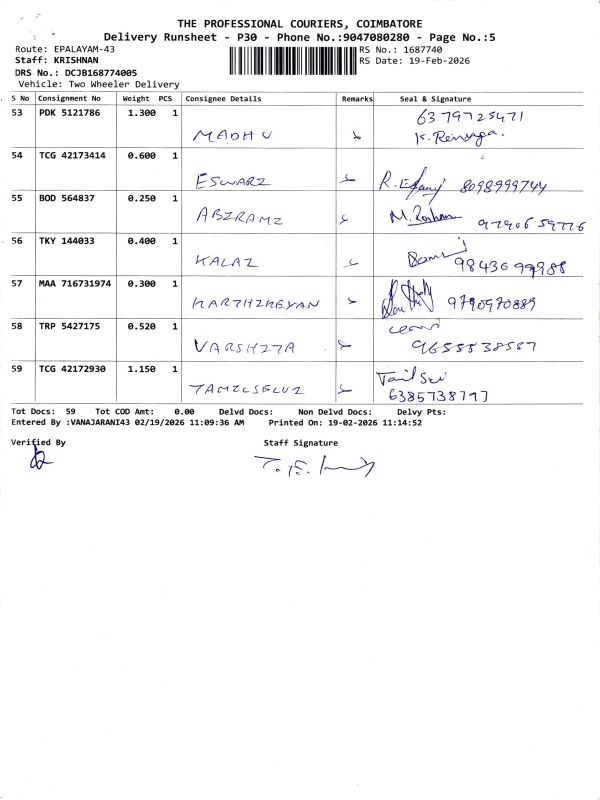 THE PROFESSIONAL COURIERS, COIMBATORE
Delivery Runsheet - P30 - Phone No.:9047080280 - Page No.:5
Route: EPALAYAM-43
RS No.: 1687740
Staff: KRISHNAN
RS Date: 19-Feb-2026
DRS No.: DCJB168774005
Vehicle: Two Wheeler Delivery
S No Consignment No Weight PCS Consignee Details Remarks Seal & Signature
53 PDK 5121786 1.300 1 MADHU 6379725471
54 TCG 42173414 0.600 1 ESWARI 8098999744
55 BOD 564837 0.250 1 ABIRAMI 9790659776
56 TKY 144033 0.400 1 KALAI 9843099988
57 MAA 716731974 0.300 1 KARTHIKEYAN 9790970889
58 TRP 5427175 0.520 1 VARSHITA 9655538557
59 TCG 42172930 1.150 1 TAMILSELVI 6385738797
Tot Docs: 59 Tot COD Amt: 0.00 Delvd Docs: Non Delvd Docs: Delvy Pts:
Entered By :VANAJARANI43 02/19/2026 11:09:36 AM Printed On: 19-02-2026 11:14:52
Verified By Staff Signature